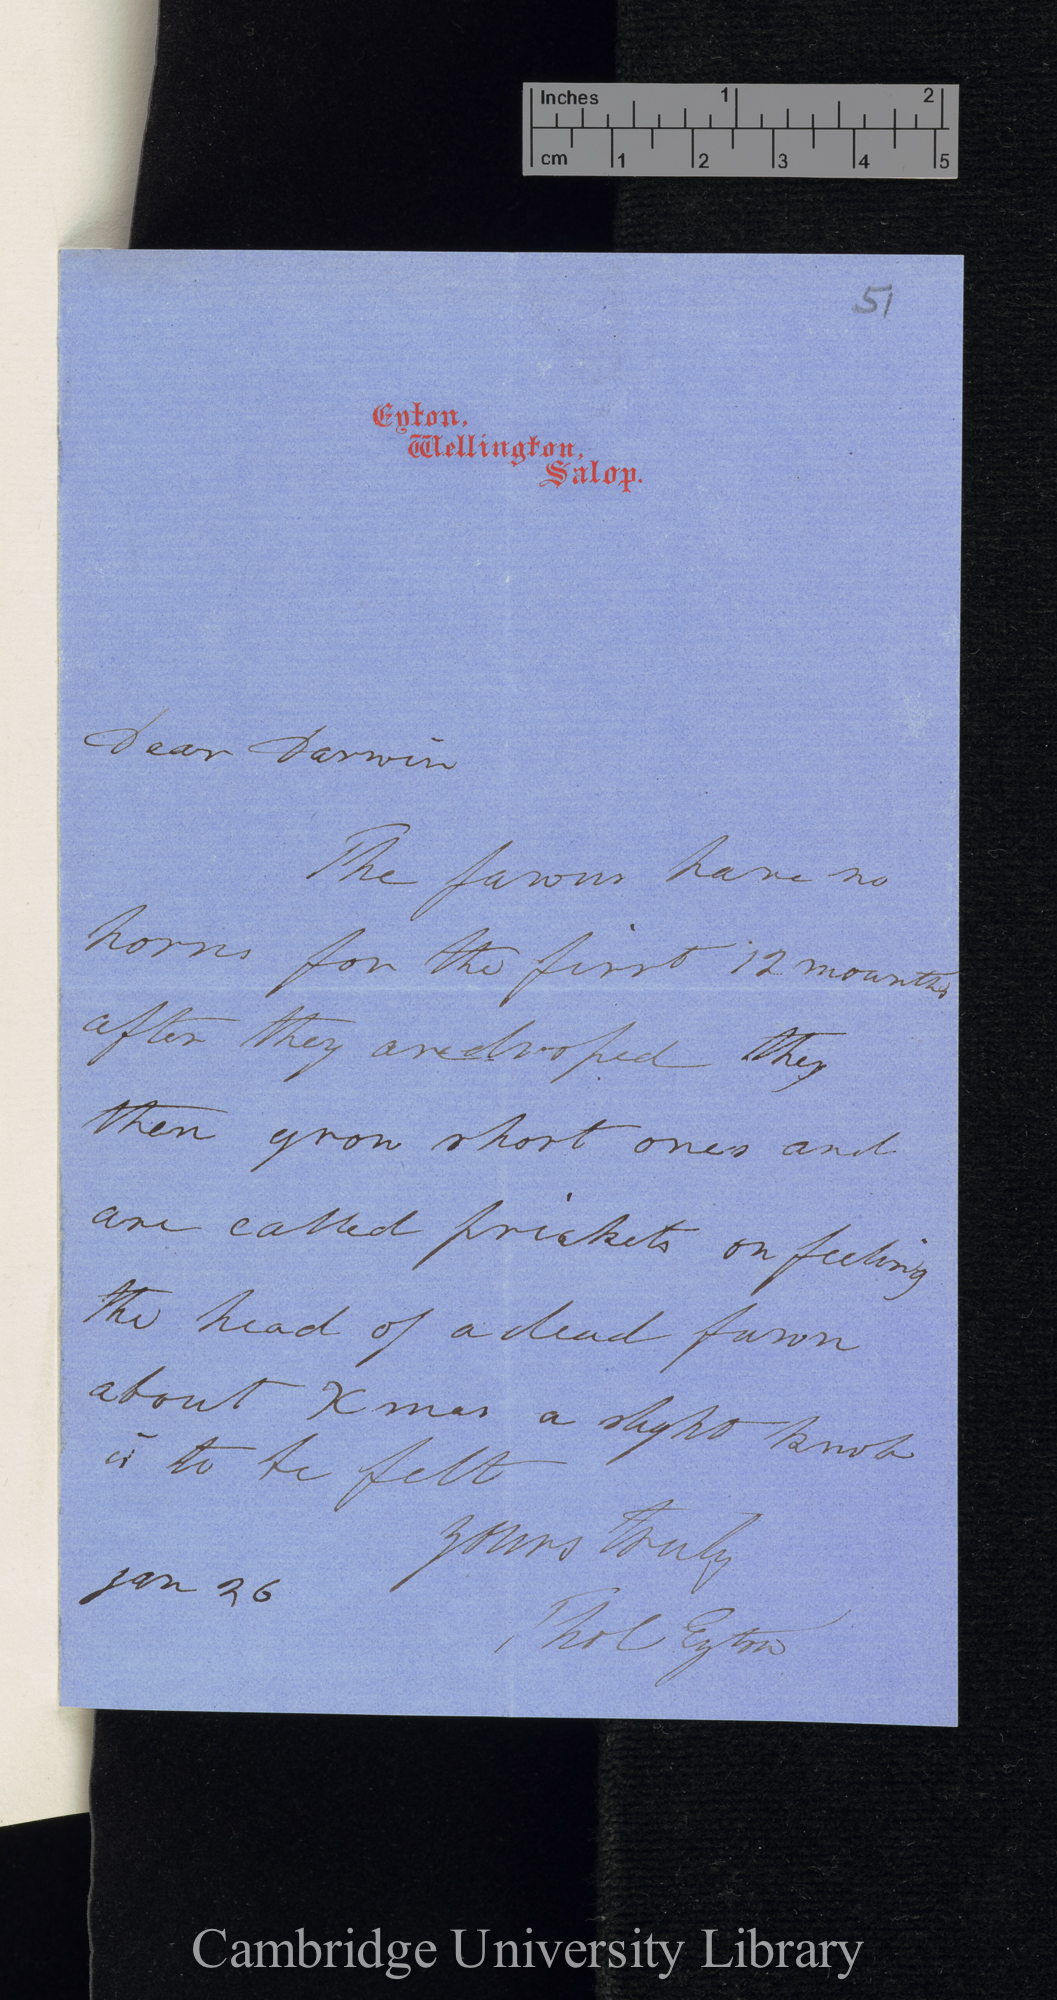 Inches 1 2
cm 1 2 3 4 5
51
Eyton,
Wellington,
Salop.
Dear Darwin
The fawns have no
horns for the first 12 mounths
after they are droped they
then grow short ones and
are called prickets on feeling
the head of a dead fawn
about Xmas a slight knob
is to be felt
yours truly
Jan 26
Tho C Eyton
Cambridge University Library